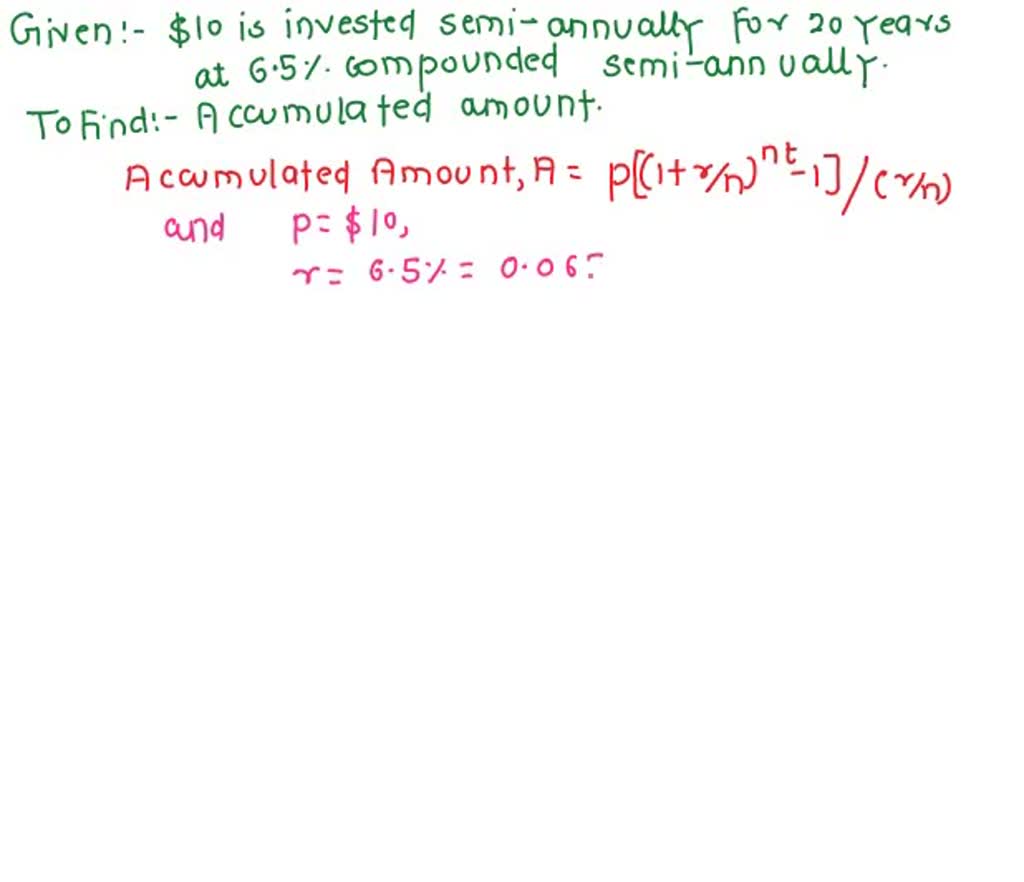 Given:- $10 is invested semi-annually for 20 years
at 6.5%. compounded semi-annually.
To Find:- Accumulated amount.
Accumulated Amount, A = p[(1+r/n)^nt-1]/(r/n)
and p= $10,
r= 6.5%= 0.06